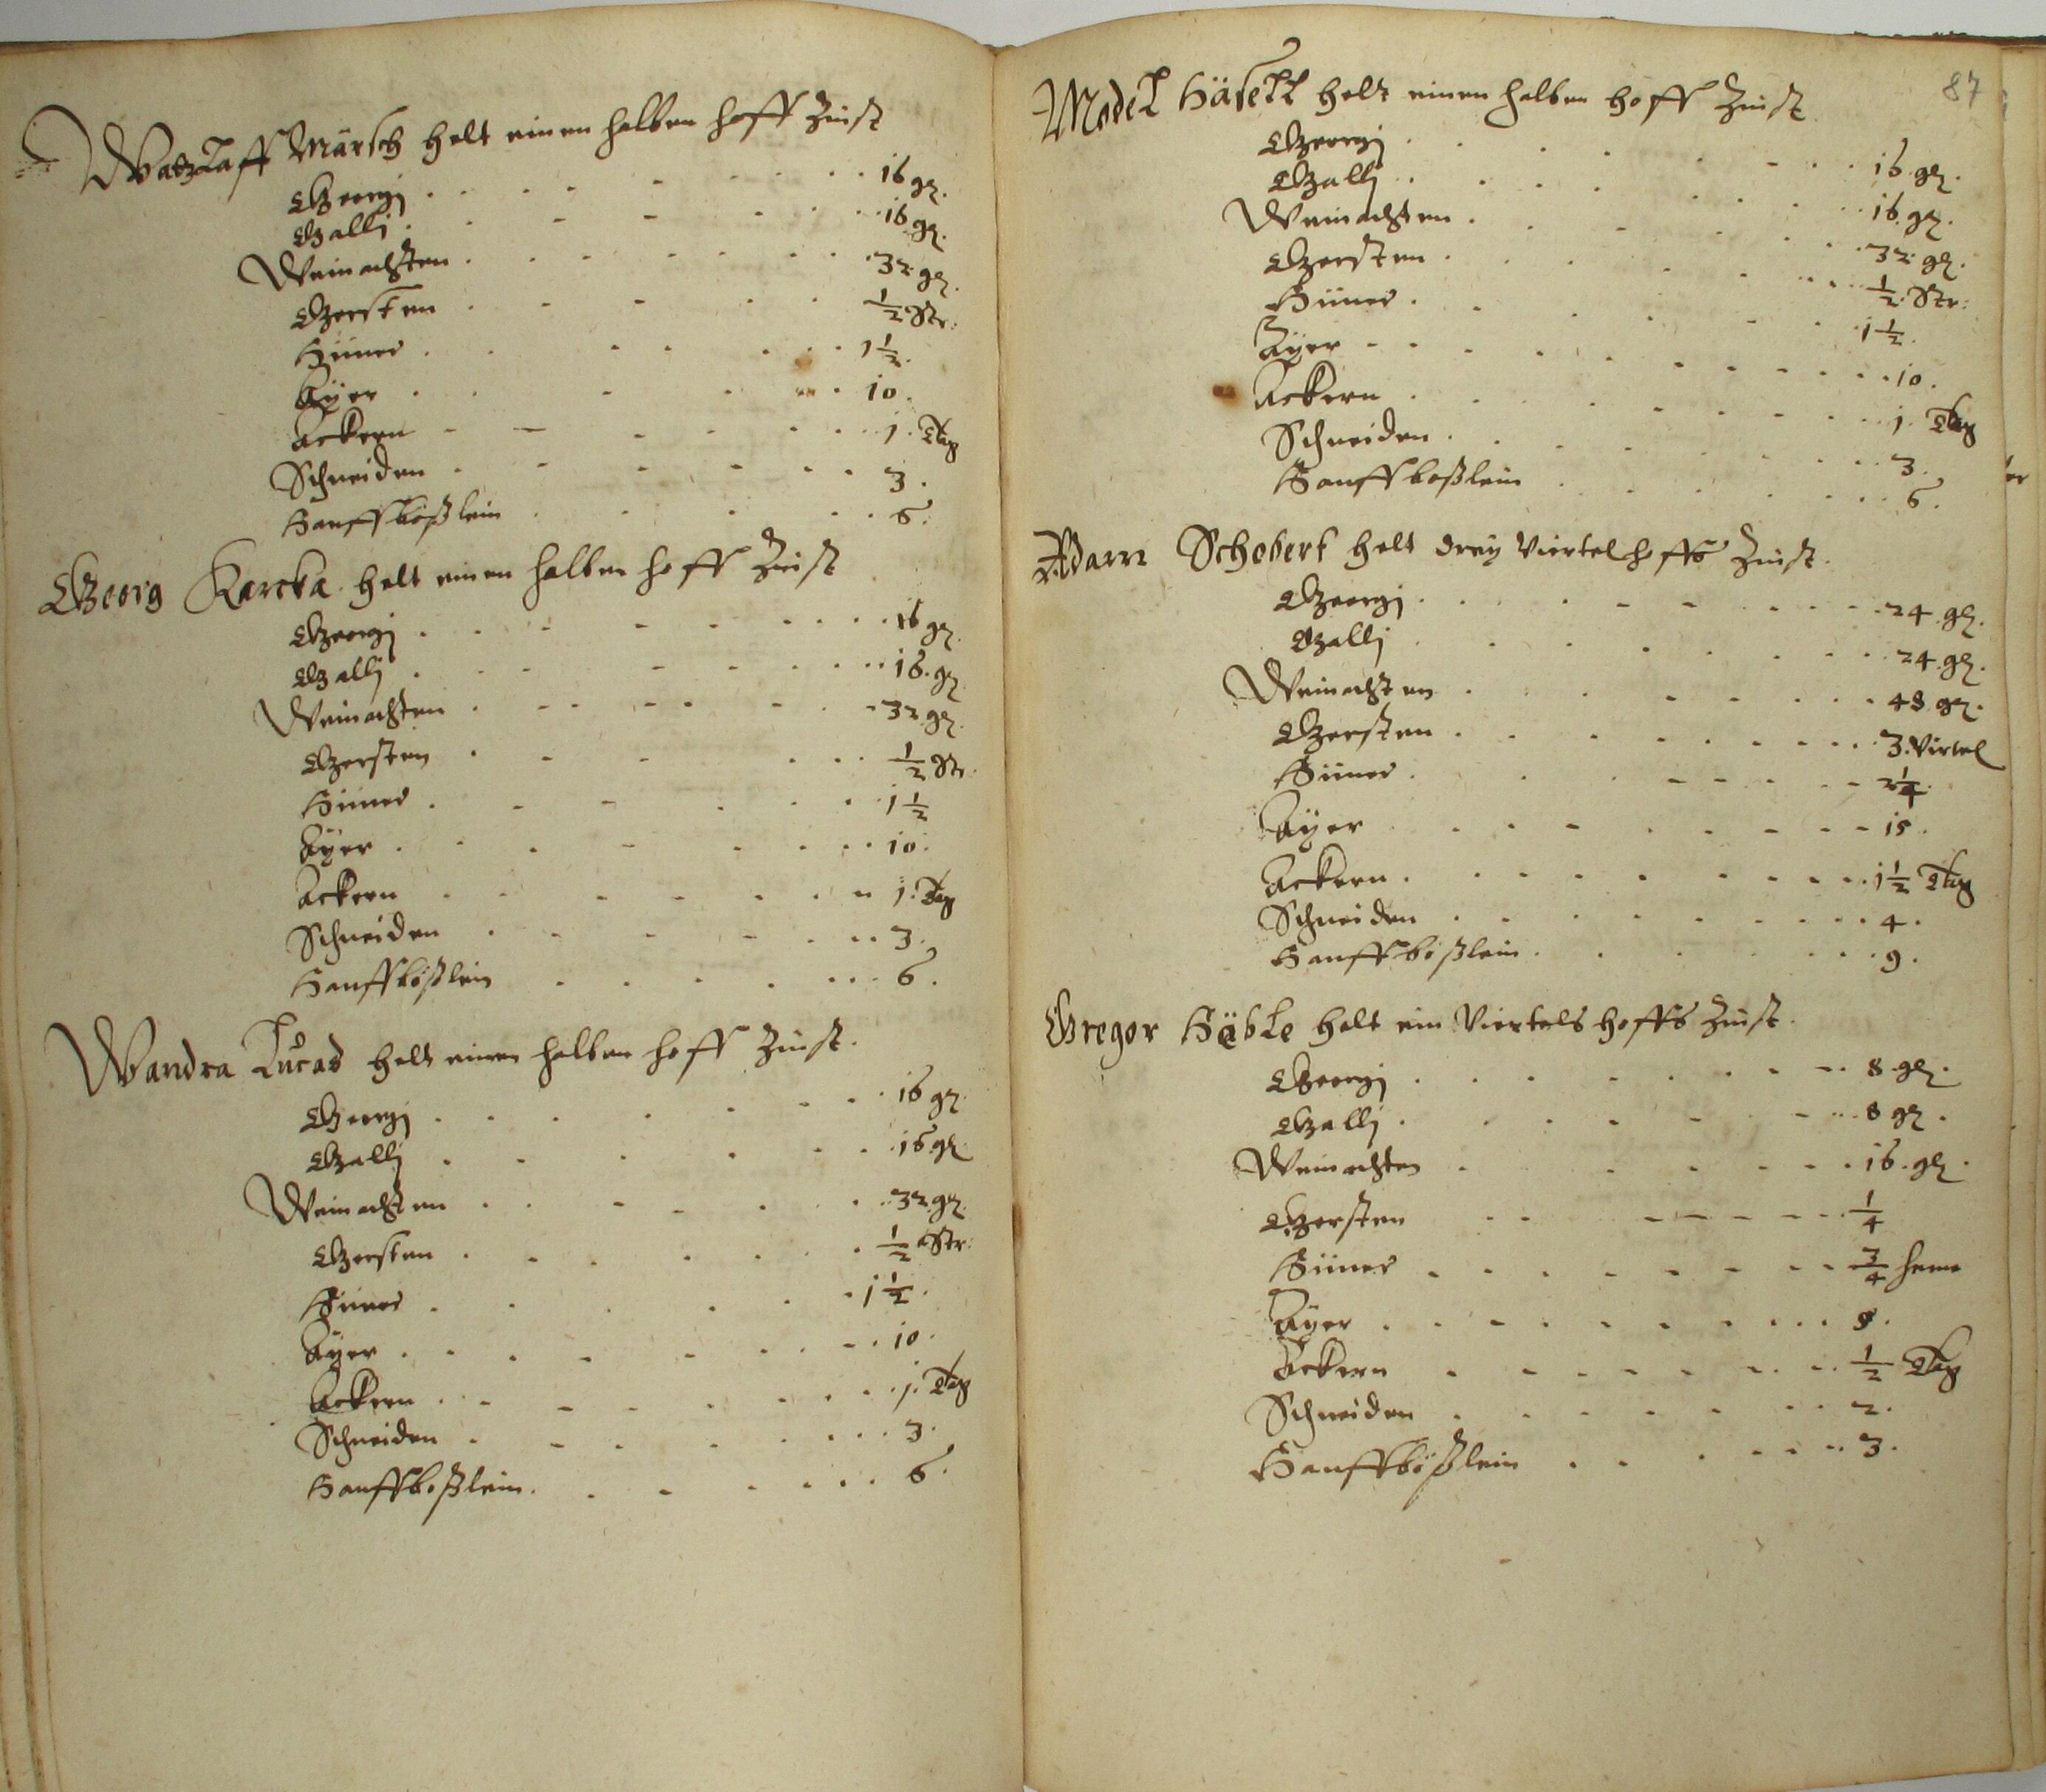 Watzlaff Märsch helt einen halben hoff Zinst
Georgj . . . 16 gr.
Gallj . . . 16 gr.
Weinachten . . . 32 gr.
Gersten . . . 1/2 Str:
Hüner . . . 1 1/2.
Ayer . . . 10.
Ackern . . . 1. Tag
Schneiden . . . 3.
Hanffbößlein . . . 6.
Georg Karcka helt einen halben hoff Zinst
Georgj . . . 16 gr.
Gallj . . . 16. gr
Weinachten . . . 32 gr.
Gersten . . . 1/2 Str.
Hüner . . . 1 1/2
Ayer . . . 10.
Ackern . . . 1. Tag
Schneiden . . . 3.
Hanffbößlein . . . 6.
Wandra Lucas helt einen halben hoff Zinst.
Georgj . . . 16 gr.
Gallj . . . 16 gr.
Weinachten . . . 32 gr.
Gersten . . . 1/2 Str:
Hüner . . . 1 1/2.
Ayer . . . 10.
Ackern . . . 1. Tag
Schneiden . . . 3.
Hanffboßlein . . . 6.
87
Model Häsell helt einen halben hoff Zinst
Georgj . . . 16. gr.
Gallj . . . 16. gr.
Weinachten . . . 32 gr.
Gersten . . . 1/2. Str:
Hüner . . . 1 1/2.
Ayer . . . 10.
Ackern . . . 1. Tag
Schneiden . . . 3.
Hanffboßlein . . . 6.
Adam Schobert helt drey Viertel hoffs Zinst.
Georgj . . . 24. gr.
Gallj . . . 24. gr.
Weinachten . . . 48 gr.
Gersten . . . 3. Virtel
Hüner . . . 2 1/4.
Ayer . . . 15.
Ackern . . . 1 1/2 Tag
Schneiden . . . 4.
Hanffboßlein . . . 9.
Gregor Häble helt ein Viertels hoffs Zinst.
Georgj . . . 8. gr.
Gallj . . . 8 gr.
Weinachten . . . 16. gr.
Gersten . . . 1/4
Hüner . . . 3/4 henn
Ayer . . .
Ackern . . . 1/2 Tag
Schneiden . . . 2.
Hanffbößlein . . . 3.